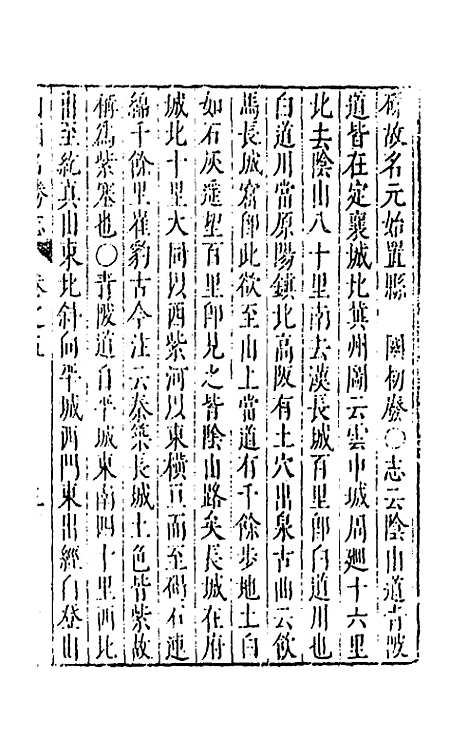 礪故名元始置縣　國初廢〇志云陰山道青陂
道皆在定襄城北冀州圖云雲中城周廻十六里
北去陰山八十里南去漢長城百里卽白道川也
白道川當原陽鎮北高阪有土穴出泉古曲云飲
馬長城窟卽此欲至山上當道有千餘步地土白
如石灰遙望百里卽見之皆陰山路矣長城在府
城北十里大同以西紫河以東橫亘而至碣石連
綿千餘里崔豹古今注云秦築長城土色皆紫故
稱爲紫塞也〇青陂道自平城東南四十里西北
出至紇真山東北斜向平城西門東出經白登山
山西名勝志　卷之五　三